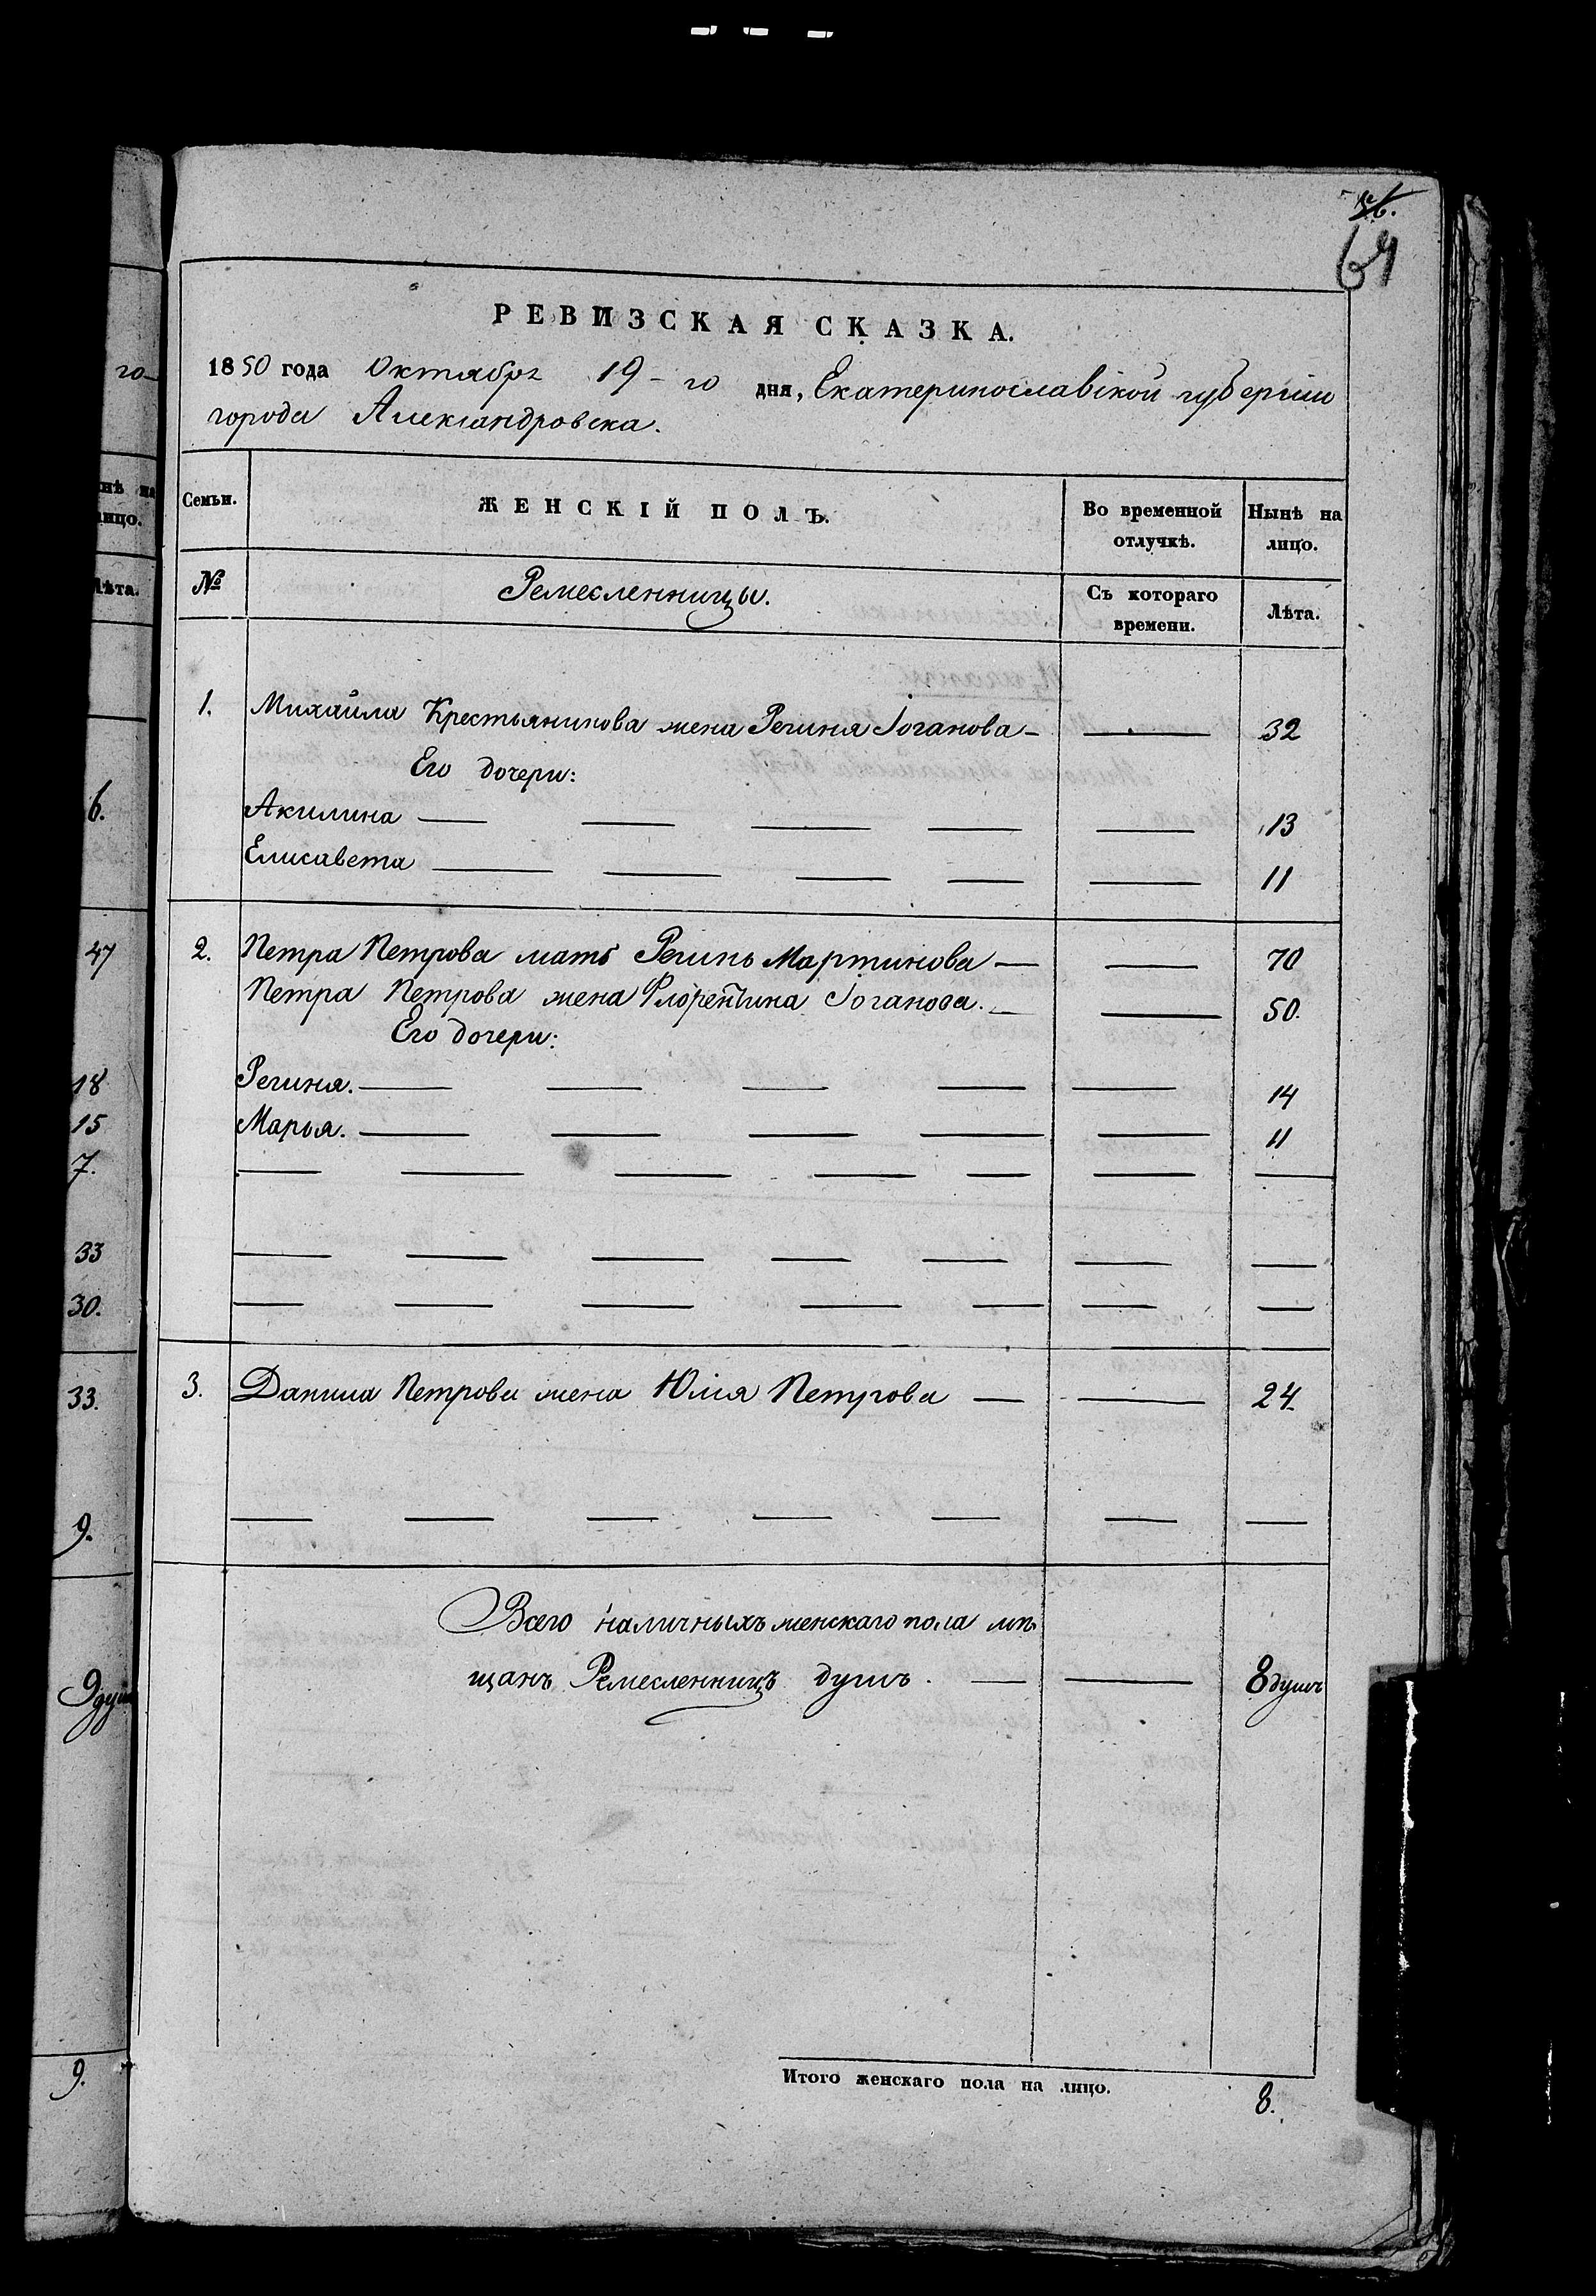 64
РЕВИЗСКАЯ СКАЗКА.
1850 года Октября 19-го дня, Екатеринославской губерніи
города Александровска.
Семьи.
ЖЕНСКІЙ ПОЛЪ.
Во временной отлучкѣ.
Нынѣ на лицо.
№
Ремесленницы.
Съ котораго времени.
Лѣта.
1. Михайла Крестьянинова жена Регина Іоганова — — 32
Его дочери:
Акилина — — — — — 13
Елисавета — — — — — 11
2. Петра Петрова мать Регина Мартинова — — 70
Петра Петрова жена Флорентина Іоганова. — — 50.
Его дочери:
Регина. — — — — — 14
Марья. — — — — — 11
— — — — — — —
— — — — — — —
— — — — — — —
3. Данила Петрова жена Юлія Петрова — — 24.
— — — — — — —
Всего наличныхъ женскаго пола мѣ
щанъ Ремесленницъ душъ. — — 8 душъ
Итого женскаго пола на лицо. 8.
го
нѣ на
лицо.
Лѣта.
6.
47
18
15
7.
33
30.
33.
9.
9 душ
9.